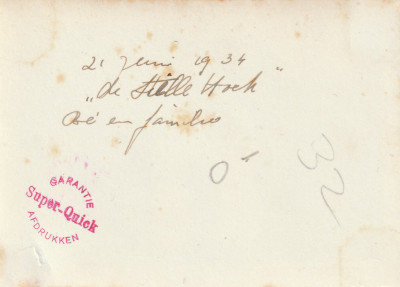 21 Juni 1934
„de Stille Hoek"
Bé en familie
0-
32
GARANTIE
Super-Quick
AFDRUKKEN